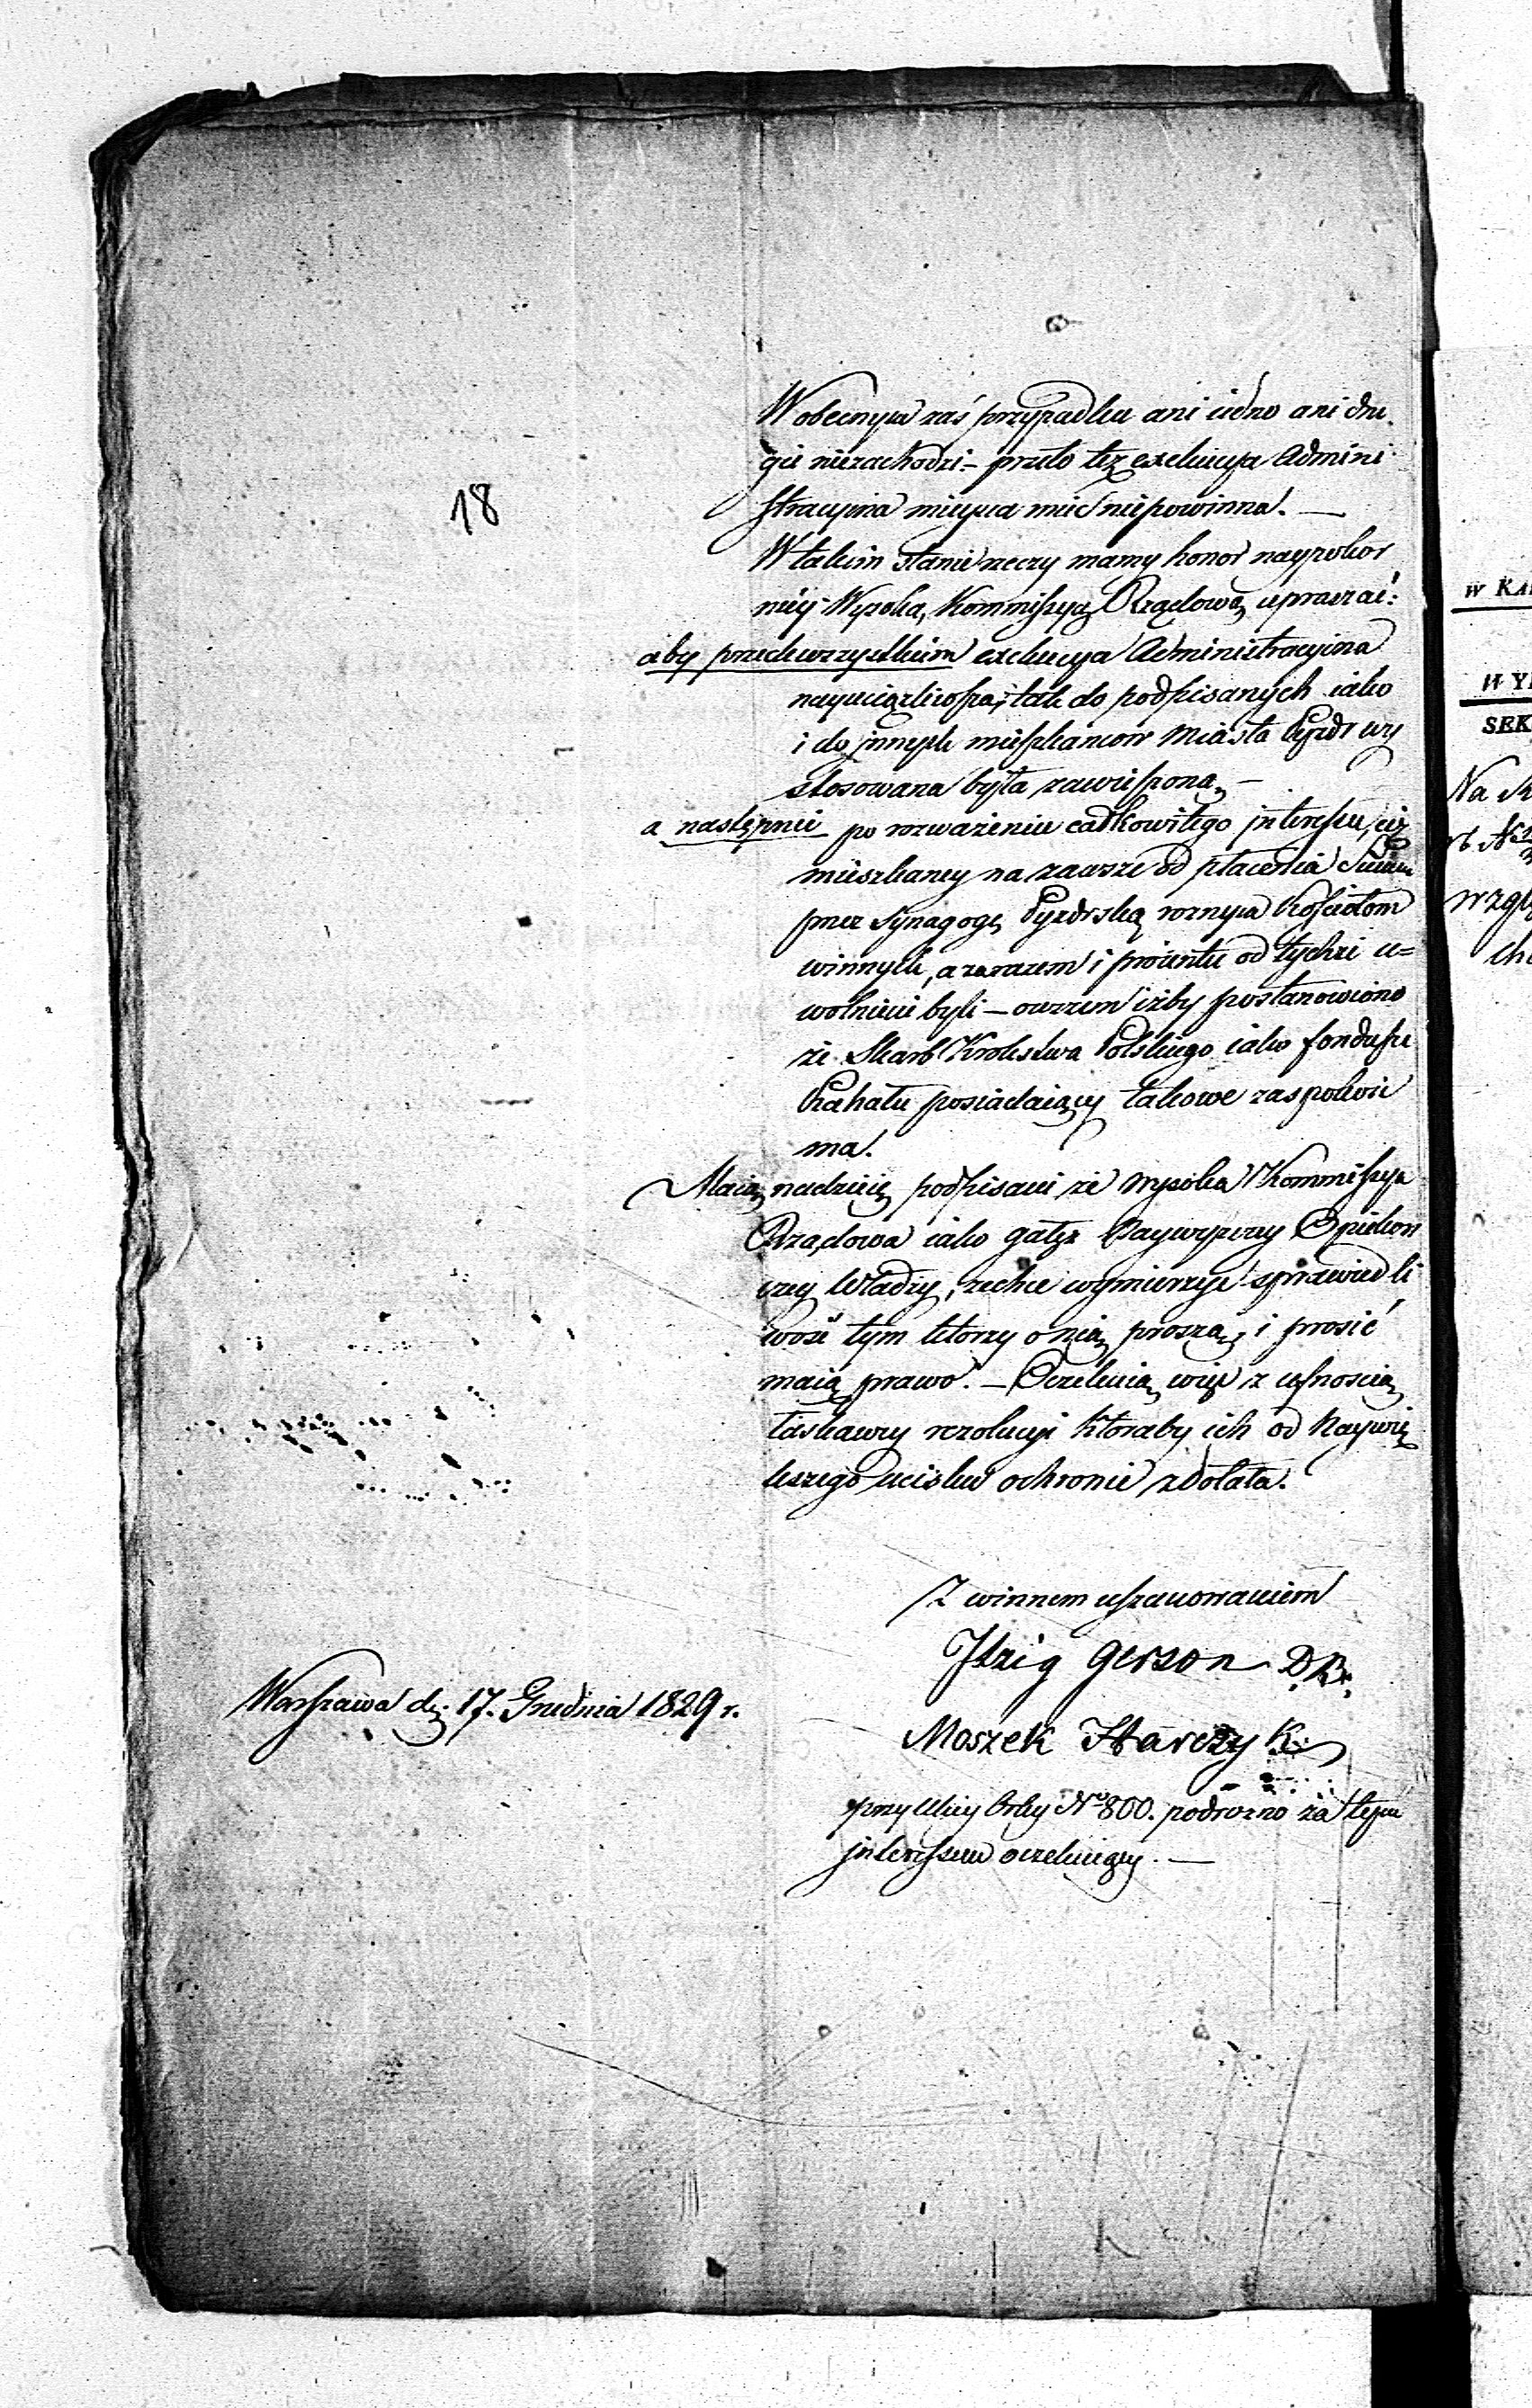 18
W obecnym zaś przypadku ani iedno ani dru
gie niezachodzi – przeto też exekucya Admini
stracyina mieysca mieć niepowinna. —
W takim stanie rzeczy mamy honor naypokor
niey Wysoką Kommissyą Rządową upraszać:
aby przedewszystkiem exekucya Administracyina
nayuciążliwsza, tak do podpisanych iako
i do innych mieszkancow Miasta Pyzdr wy
stosowana była zawieszoną –
a następnie po rozważeniu całkowitego interessu, ciż
mieszkancy na zawsze od płacenia Summ
przez Synagogę Pyzdrską roznym Kościołom
winnych, a zarazem i procentu od tychże u=
wolnieni byli – owszem iżby postanowiono
że Skarb Krolestwa Polskiego iako fondusze
Kahału posiadaiący takowe zaspokoić
ma.
Maią nadzieię podpisani że Wysoka Kommissya
Rządowa iako gałęź Naywyższey Opiekun
czey Władzy, zechce wymierzyć sprawiedli
wość tym ktorzy o nią proszą, i prosić
maią prawo. – Oczekuią więc z ufnością
łaskawey rezolucyi ktoraby ich od Naywię
kszego ucisku ochronić zdołała.
Z winnem uszanowaniem
Itzig Gerson
Warszawa d. 17. Grudnia 1829 r.
Moszek Harczyk
przy Ulicy N° 800. podrozno za tym
interessem oczekuiący. —
W KA
W Y
SEK
Na
wzgl